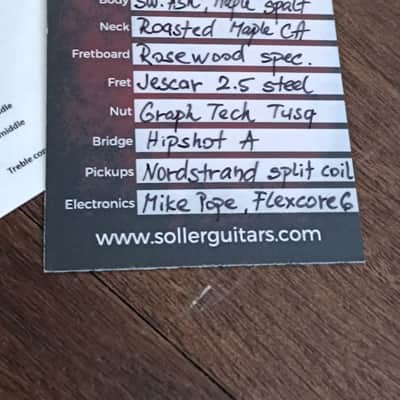 Body Sw. Ash, Maple spalt
Neck Roasted Maple CA
Fretboard Rosewood spec.
Fret Jescar 2.5 steel
Nut Graph Tech Tusq
Bridge Hipshot A
Pickups Nordstrand split coil
Electronics Mike Pope, Flexcore6
www.sollerguitars.com
middle
Treble